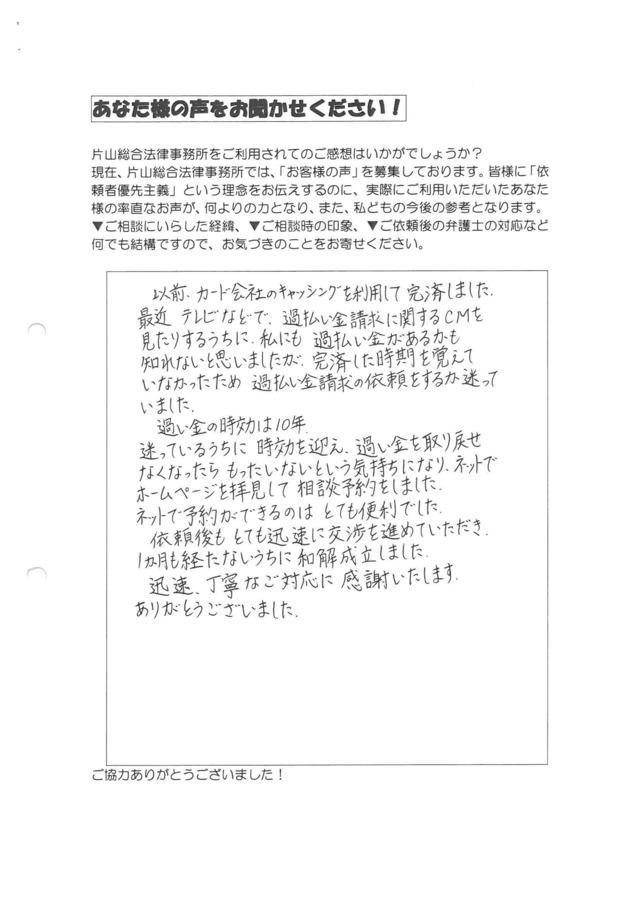 あなた様の声をお聞かせください！
片山総合法律事務所をご利用されてのご感想はいかがでしょうか？
現在、片山総合法律事務所では、「お客様の声」を募集しております。皆様に「依
頼者優先主義」という理念をお伝えするのに、実際にご利用いただいたあなた
様の率直なお声が、何よりの力となり、また、私どもの今後の参考となります。
▼ご相談にいらした経緯、▼ご相談時の印象、▼ご依頼後の弁護士の対応など
何でも結構ですので、お気づきのことをお寄せください。
以前、カード会社のキャッシングを利用して完済しました。
最近 テレビなどで、過払い金請求に関するCMを
見たりするうちに、私にも 過払い金があるかも
知れないと思いましたが、完済した時期を覚えて
いなかったため 過払い金請求の依頼をするか迷って
いました。
過い金の時効は10年。
迷っているうちに 時効を迎え、過い金を取り戻せ
なくなったら もったいないという気持ちになり、ネットで
ホームページを拝見して 相談予約をしました。
ネットで予約ができるのは とても便利でした。
依頼後も とても迅速に交渉を進めていただき、
1カ月も経たないうちに 和解成立しました。
迅速、丁寧なご対応に 感謝いたします。
ありがとうございました。
ご協力ありがとうございました！